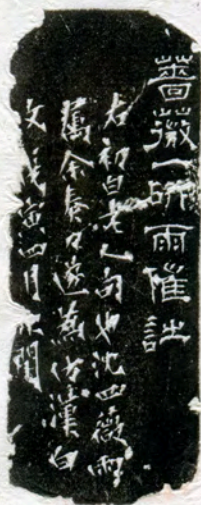 薔薇一研雨催詩
右初白老人句也沈四薇
屬余奏刀遂為仿漢白
文戊寅四月